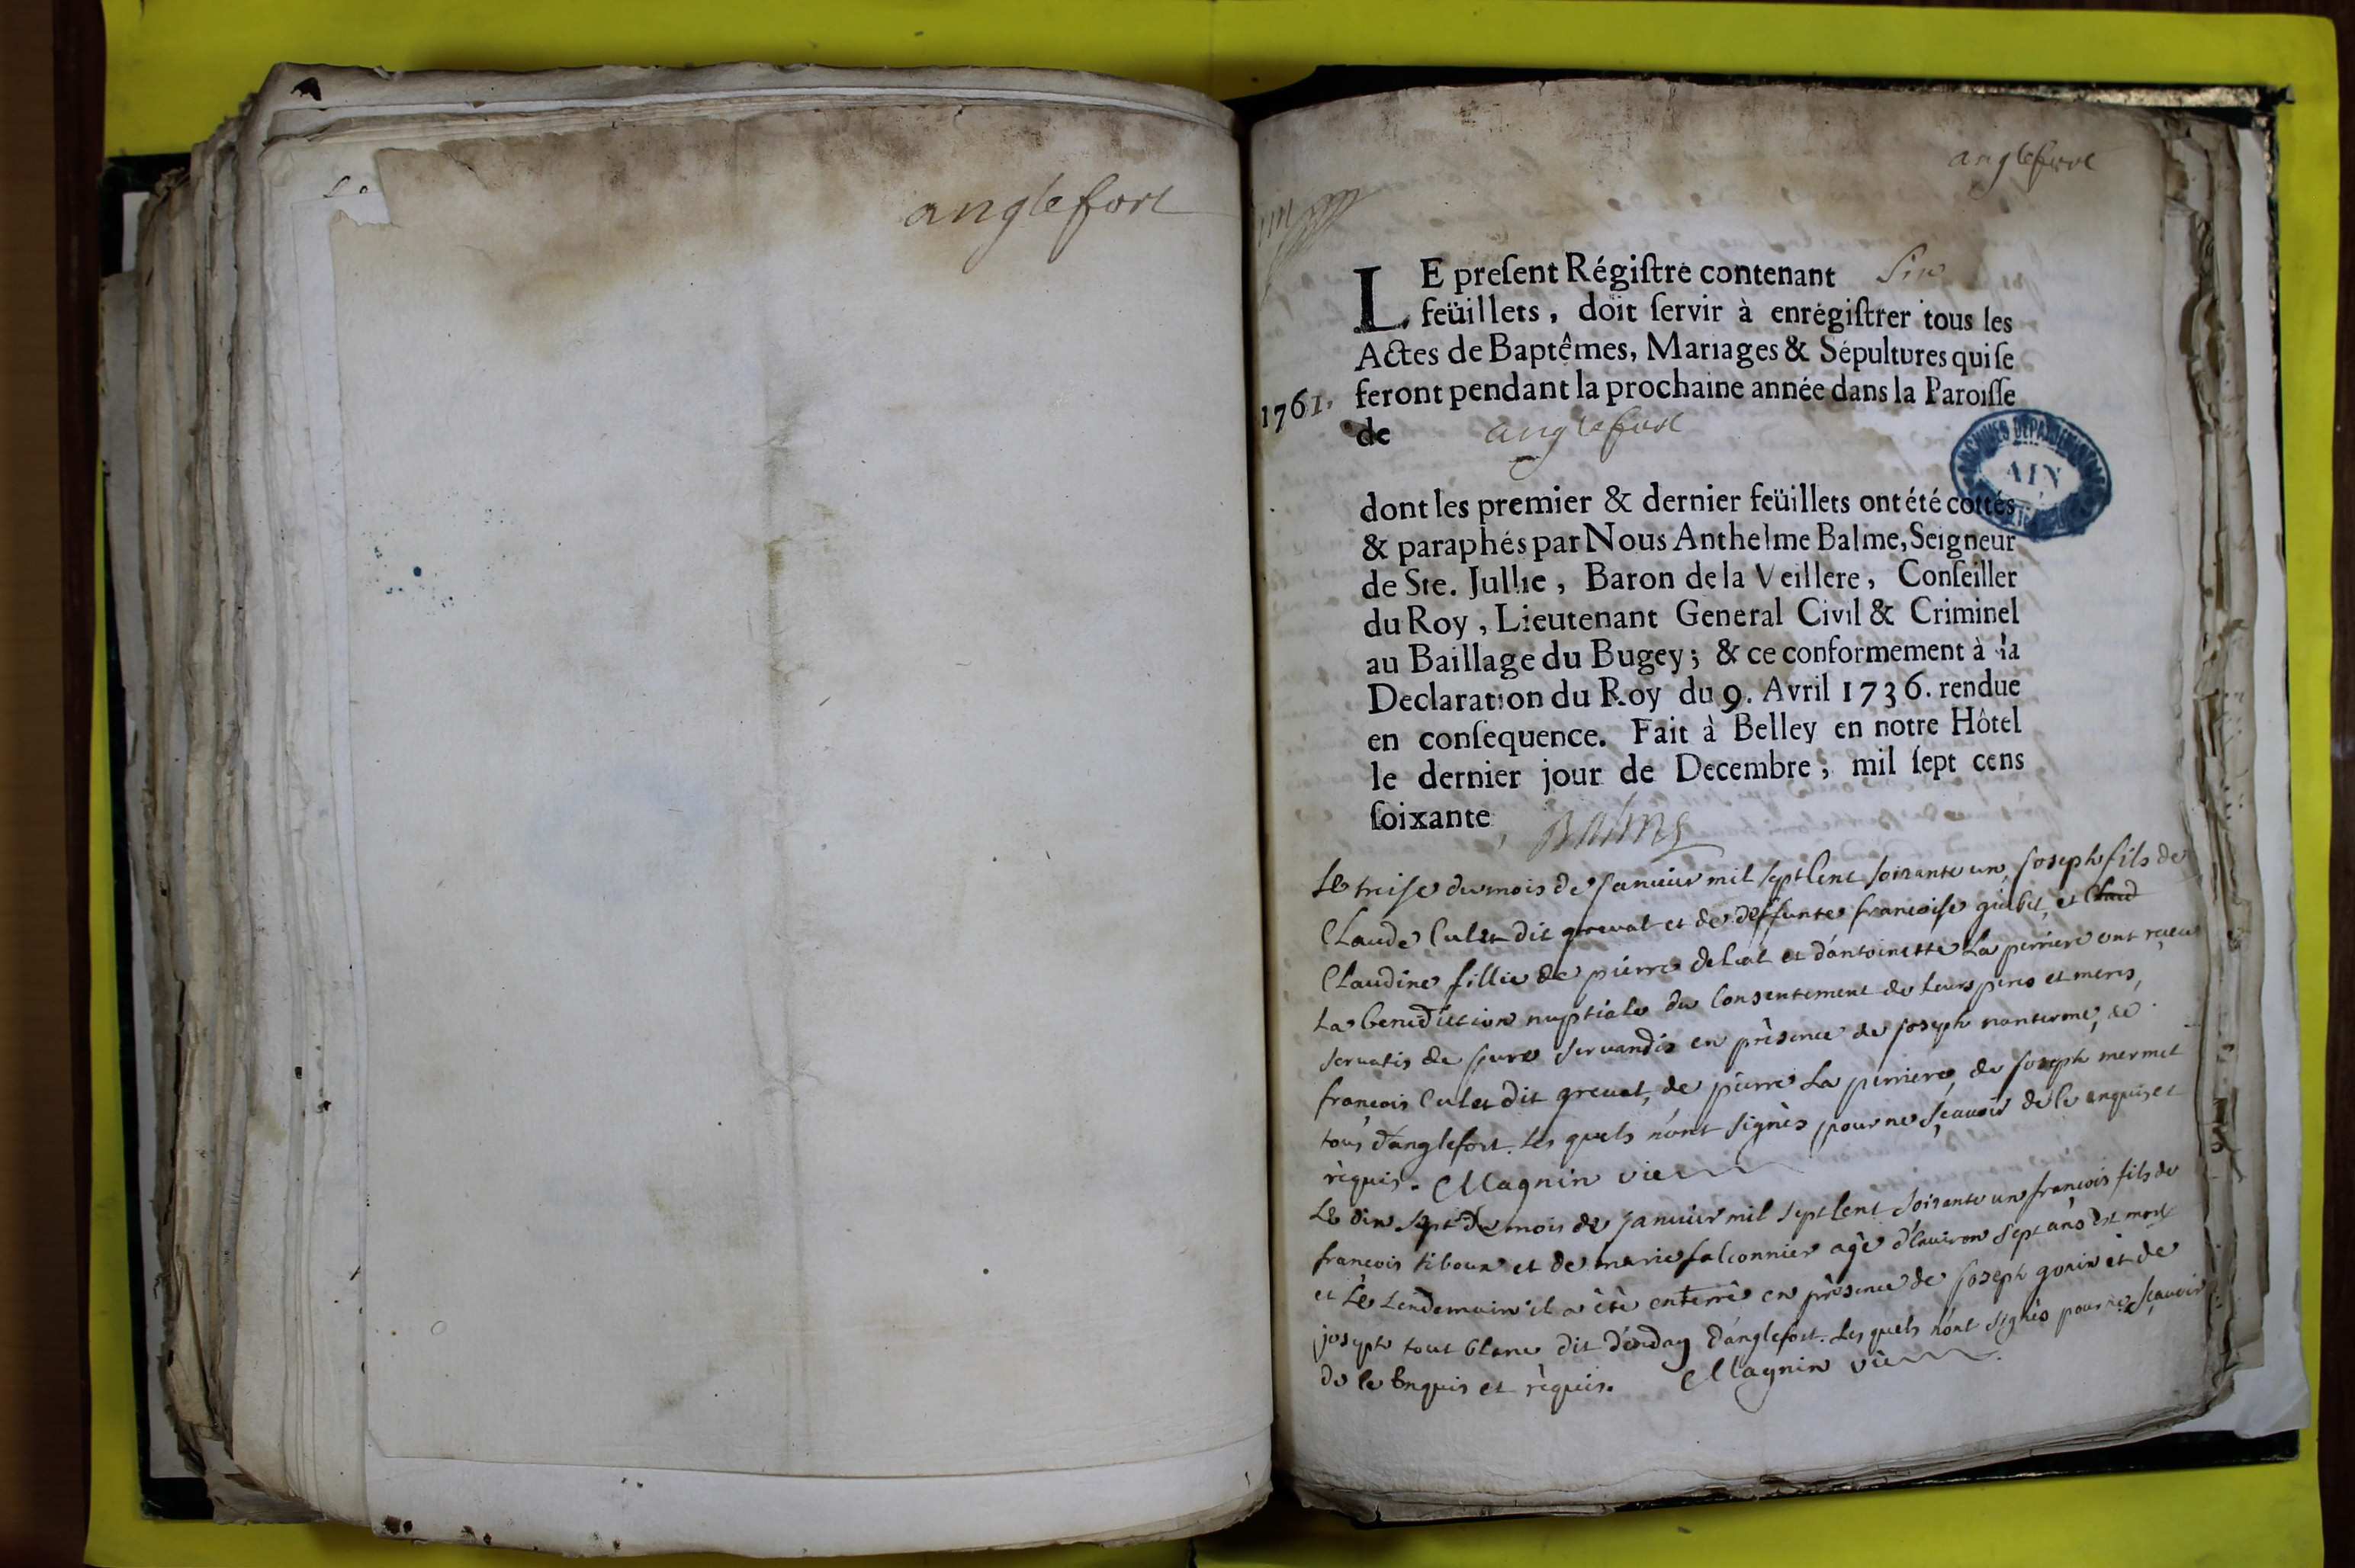 anglefort
anglefort
LE preſent Régiſtre contenant Six
feüillets, doit ſervir à enrégiſtrer tous les
Actes de Baptêmes, Mariages & Sépultures qui ſe
1761. feront pendant la prochaine année dans la Paroiſſe
de anglefort
ARCHIVES DEPARTEMENTALES
AIN
dont les premier & dernier feüillets ont été cottés
& paraphés par Nous Anthelme Balme, Seigneur
de Ste. Jullie, Baron de la Veillere, Conſeiller
du Roy, Lieutenant General Civil & Criminel
au Baillage du Bugey; & ce conformement à la
Declaration du Roy du 9. Avril 1736. rendue
en conſequence. Fait à Belley en notre Hôtel
le dernier jour de Decembre, mil ſept cens
ſoixante, Balme
Le treise du mois de Janvier mil sept Cent soixante un, Joseph fils de
Claude Culet dit greval et de deffunte francoise et Claud
Claudine fillie de pierre et d'antoinette La perriere ont recu
La benediction nuptiale du Consentement de Leurs peres et meres,
servatis de jure servandis en présence de joseph nanterme, de
francois Culet dit greval, de pierre La perriere, de Joseph mermet
tous d'anglefort. Les quels n'ont signés pour ne sçavoir de Ce enquis et
réquis. Magnin vic
Le dix sept du mois de Janvier mil sept Cent soixante un francois fils de
francois et de marie falconnier agé d'Environ sept ans est mort
et Le Lendemain il a été enterré en présence de Joseph gorin et de
joseph tout blanc dit d'anglefort. Les quels n'ont signés pour ne sçavoir
de Ce Enquis et réquis. Magnin vic